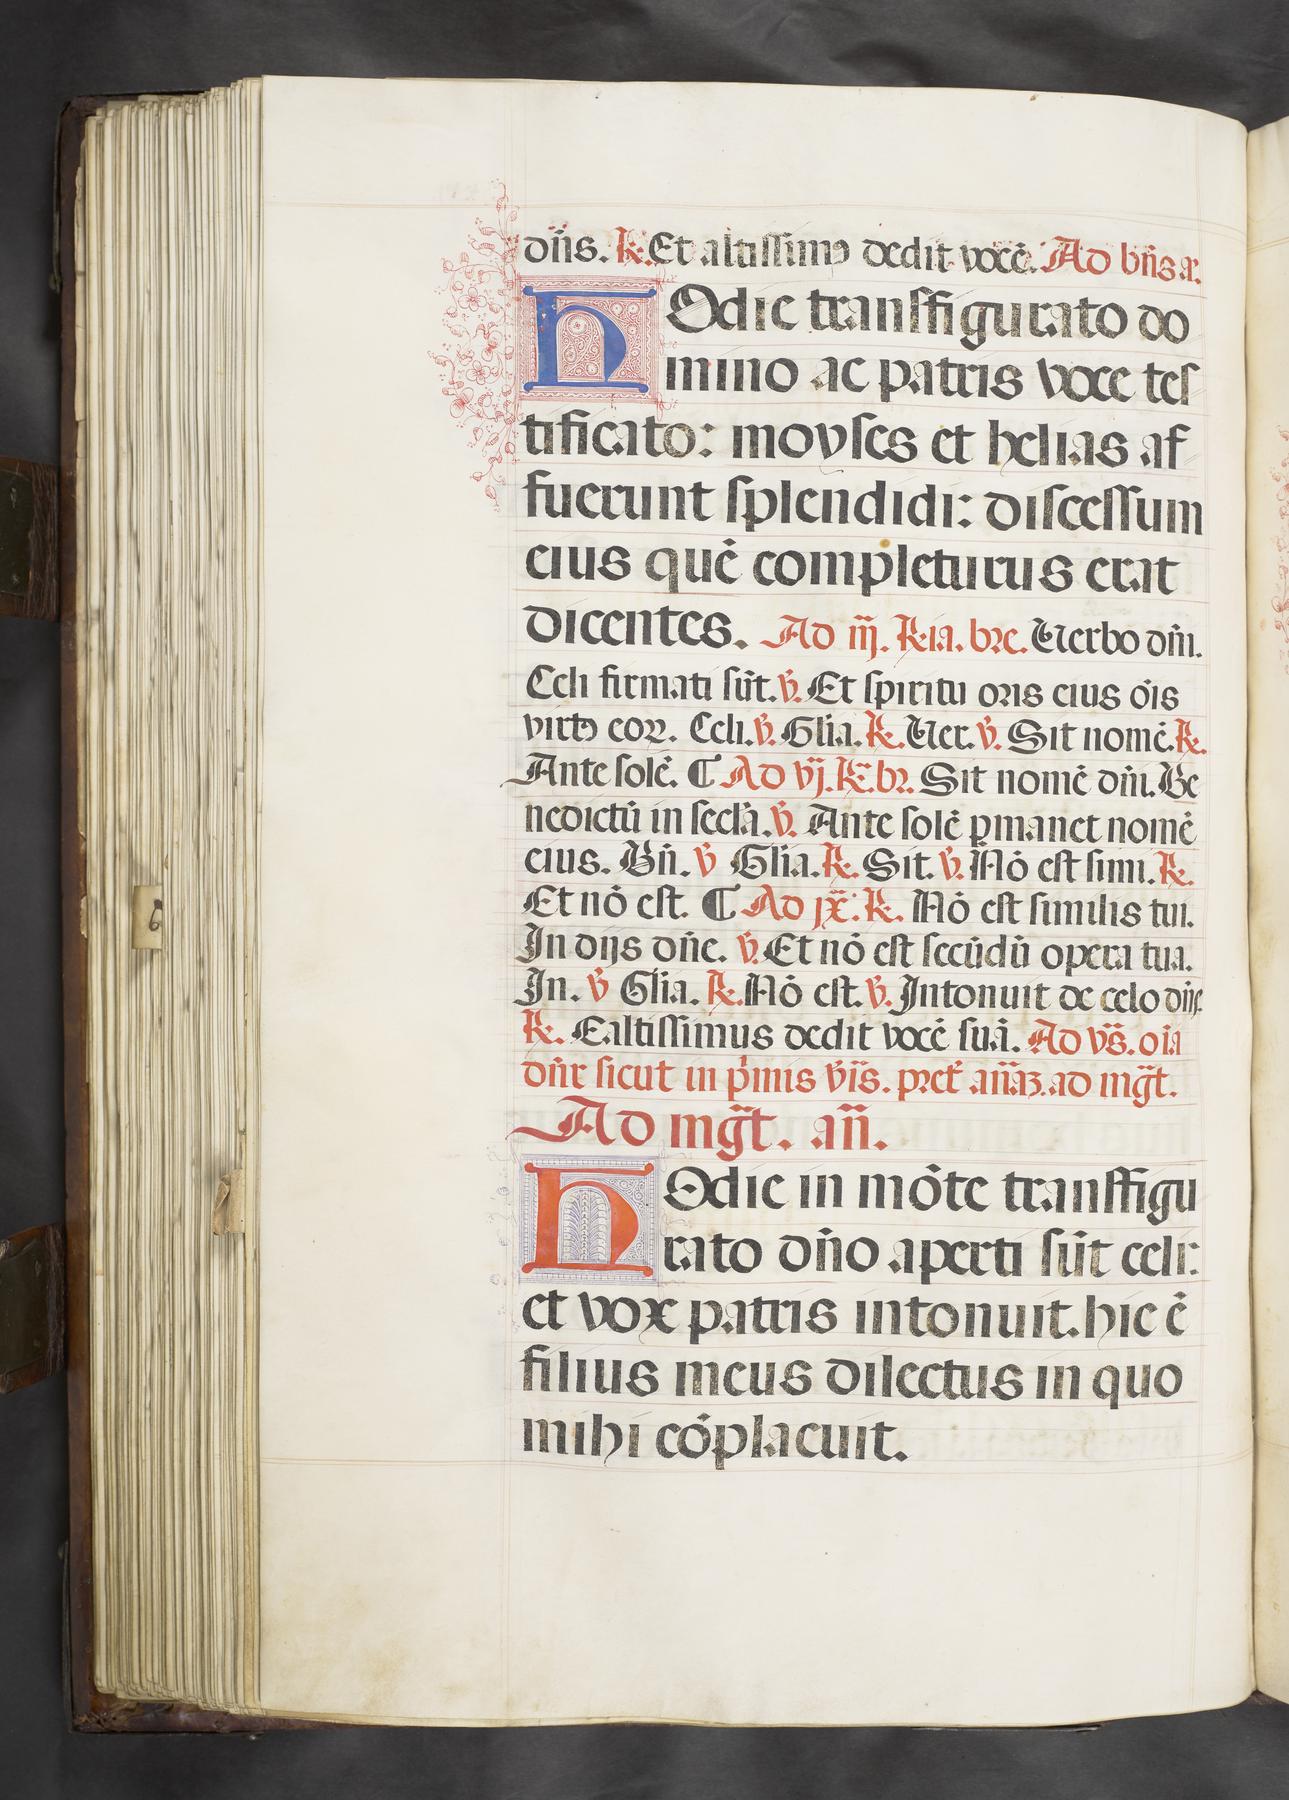 dn̄s. ℟. Et altissimꝰ dedit vocē. Ad bn̄s a.
HOdie transfigurato do
mino ac patris voce tes
tificato: moyses et helias af
fuerunt splendidi: discessum
eius quē completurus erat
dicentes. Ad iij. ℟ia. bre. Uerbo dn̄i.
Celi firmati sūt. ℣. Et spiritu oris eius oīs
virtꝰ coꝝ. Celi. ℣. Gl̄ia. ℟. Uer. ℣. Sit nomē. ℟.
Ante solē. ¶ Ad vj. ℟. br. Sit nomē dn̄i. Be
nedictū in secl̄a. ℣. Ante solē ꝑmanet nomē
eius. Bn̄. ℣ Gl̄ia. ℟. Sit. ℣. Nō est simi. ℟.
Et nō est. ¶ Ad ix. ℟. Nō est similis tui.
In dijs dn̄e. ℣. Et nō est secūdū opera tua.
In. ℣ Gl̄ia. ℟. Nō est. ℣. Intonuit de celo dn̄s
℟. Ealtissimus dedit vocē suā. Ad vs̄. oīa
dn̄r sicut in pimis vīs. pret an̄aꝫ. ad mḡt.
Ad mḡt. an̄.
HOdie in mōte transfigu
rato dn̄o aperti sūt celi:
et vox patris intonuit. hic ē
filius meus dilectus in quo
mihi cōplacuit.
6